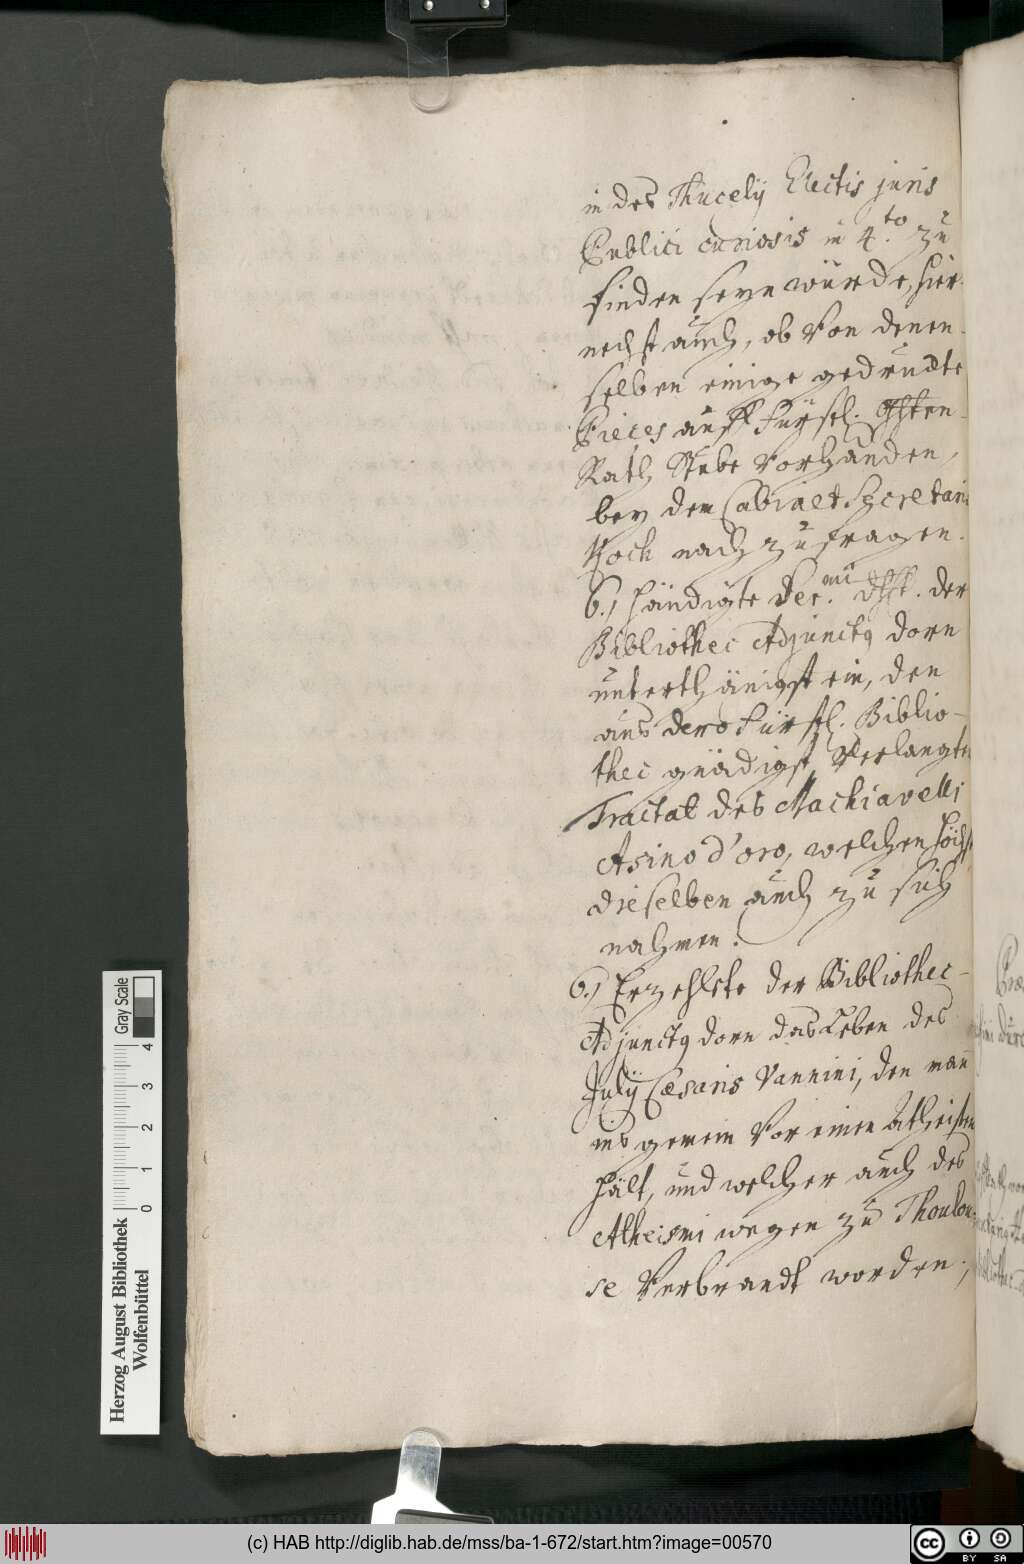 in des Thucelij Electis juris
Publici curiosis in 4.to zu
finden seyn würde, hier-
nechst auch, ob von denen-
selben einige gedruckte
Pieces auff Fürstl.
Rath Stube vorhanden,
bey dem Cabinet Secretario
Koch nachzufragen.
6.) händigte Ser.mi der
Bibliothec Adjunctq Dorn
unterthänigst ein, den
aus dero Fürstl. Biblio-
thec gnädigst verlangten
Tractat des Machiavelli
Asino d'oro, welchen höchst
dieselben auch zu sich
nahmen.
6.) Erzehlete der Bibliothec-
Adjunctq Dorn das Leben des
Julij Cæsaris Vannini, den man
ins gemein vor einen Atheisten
hält, und welcher auch des
Atheismi wegen zu Thoulou-
se verbrandt worden,
Gray Scale
0 1 2 3 4
Herzog August Bibliothek
Wolfenbüttel
(c) HAB http://diglib.hab.de/mss/ba-1-672/start.htm?image=00570
cc BY SA